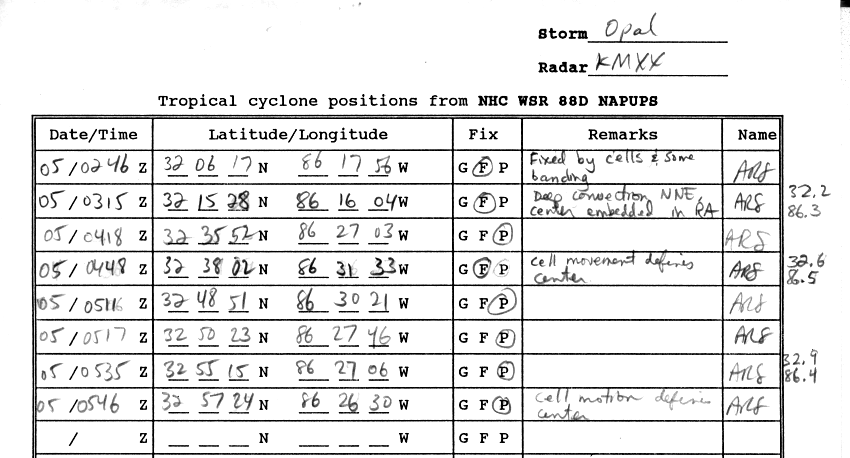 Storm Opal
Radar KMXX
Tropical cyclone positions from NHC WSR 88D NAPUPS
Date/Time Latitude/Longitude Fix Remarks Name
05/0246 Z 32 06 17 N 86 17 56 W G F P Fixed by cells & some banding ARS
05/0315 Z 32 15 28 N 86 16 04 W G F P Deep convection NNE, center embedded in RA ARS 32.2 86.3
05/0418 Z 32 35 52 N 86 27 03 W G F P ARS
05/0448 Z 32 38 02 N 86 31 33 W G F P cell movement defines center ARS 32.6 86.5
05/0516 Z 32 48 51 N 86 30 21 W G F P ARS
05/0517 Z 32 50 23 N 86 27 46 W G F P ARS
05/0535 Z 32 55 15 N 86 27 06 W G F P ARS 32.9 86.4
05/0546 Z 32 57 24 N 86 26 30 W G F P cell motion defines center ARS
/ Z N W G F P